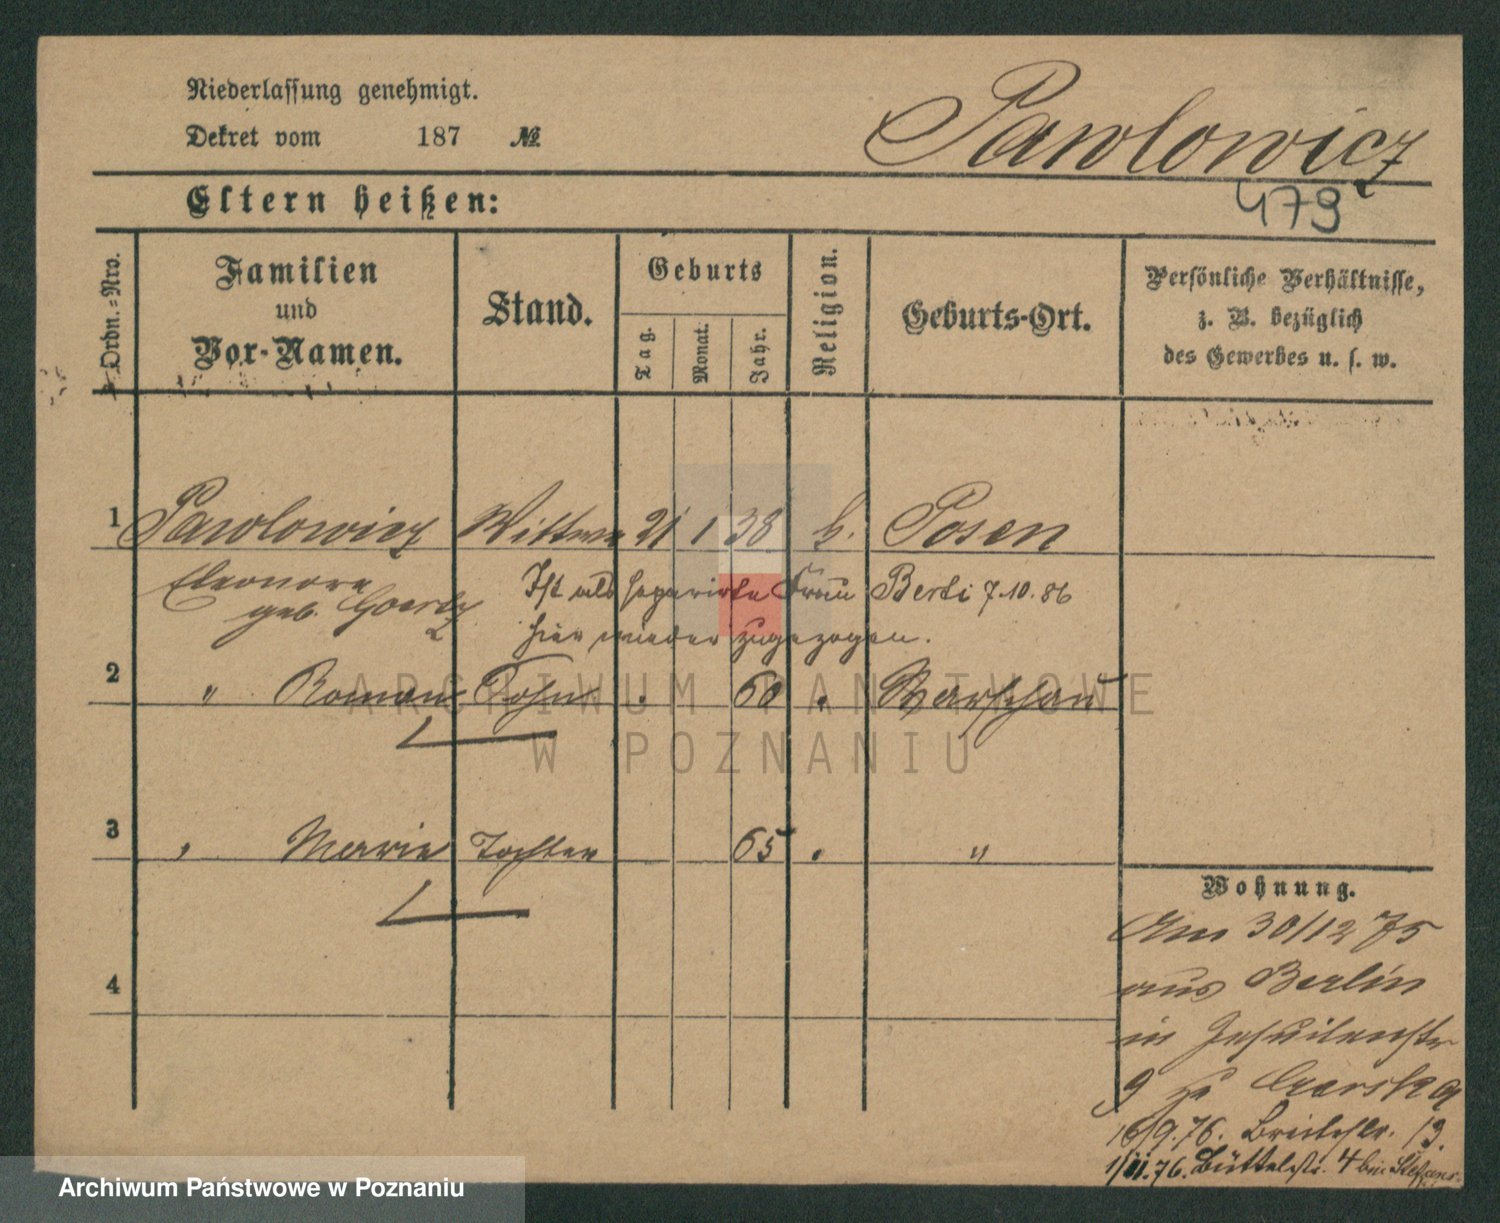 Niederlassung genehmigt.
Dekret vom 187 №
Pawlowicz
479
Eltern heißen:
Ordn.-Nro.
Familien
und
Vor-Namen.
Stand.
Geburts
Tag.
Monat.
Jahr.
Religion.
Geburts-Ort.
Persönliche Verhältnisse,
z. B. bezüglich
des Gewerbes u. s. w.
1 Pawlowicz Wittwe 21 1 38 k. Posen
Eleonore
geb.
Ist als separirte Frau 7.10.86
hier wieder zugezogen.
2 " Roman Sohn 60 " Warschau
3 " Marie Tochter 65 " "
4
Wohnung.
Am 30/12 75
aus Berlin
in Jesuitenstr
9
16/9.76. Breitestr. 13.
1/11.76. Büttelstr. 4 bei
ARCHIWUM PAŃSTWOWE
W POZNANIU
Archiwum Państwowe w Poznaniu